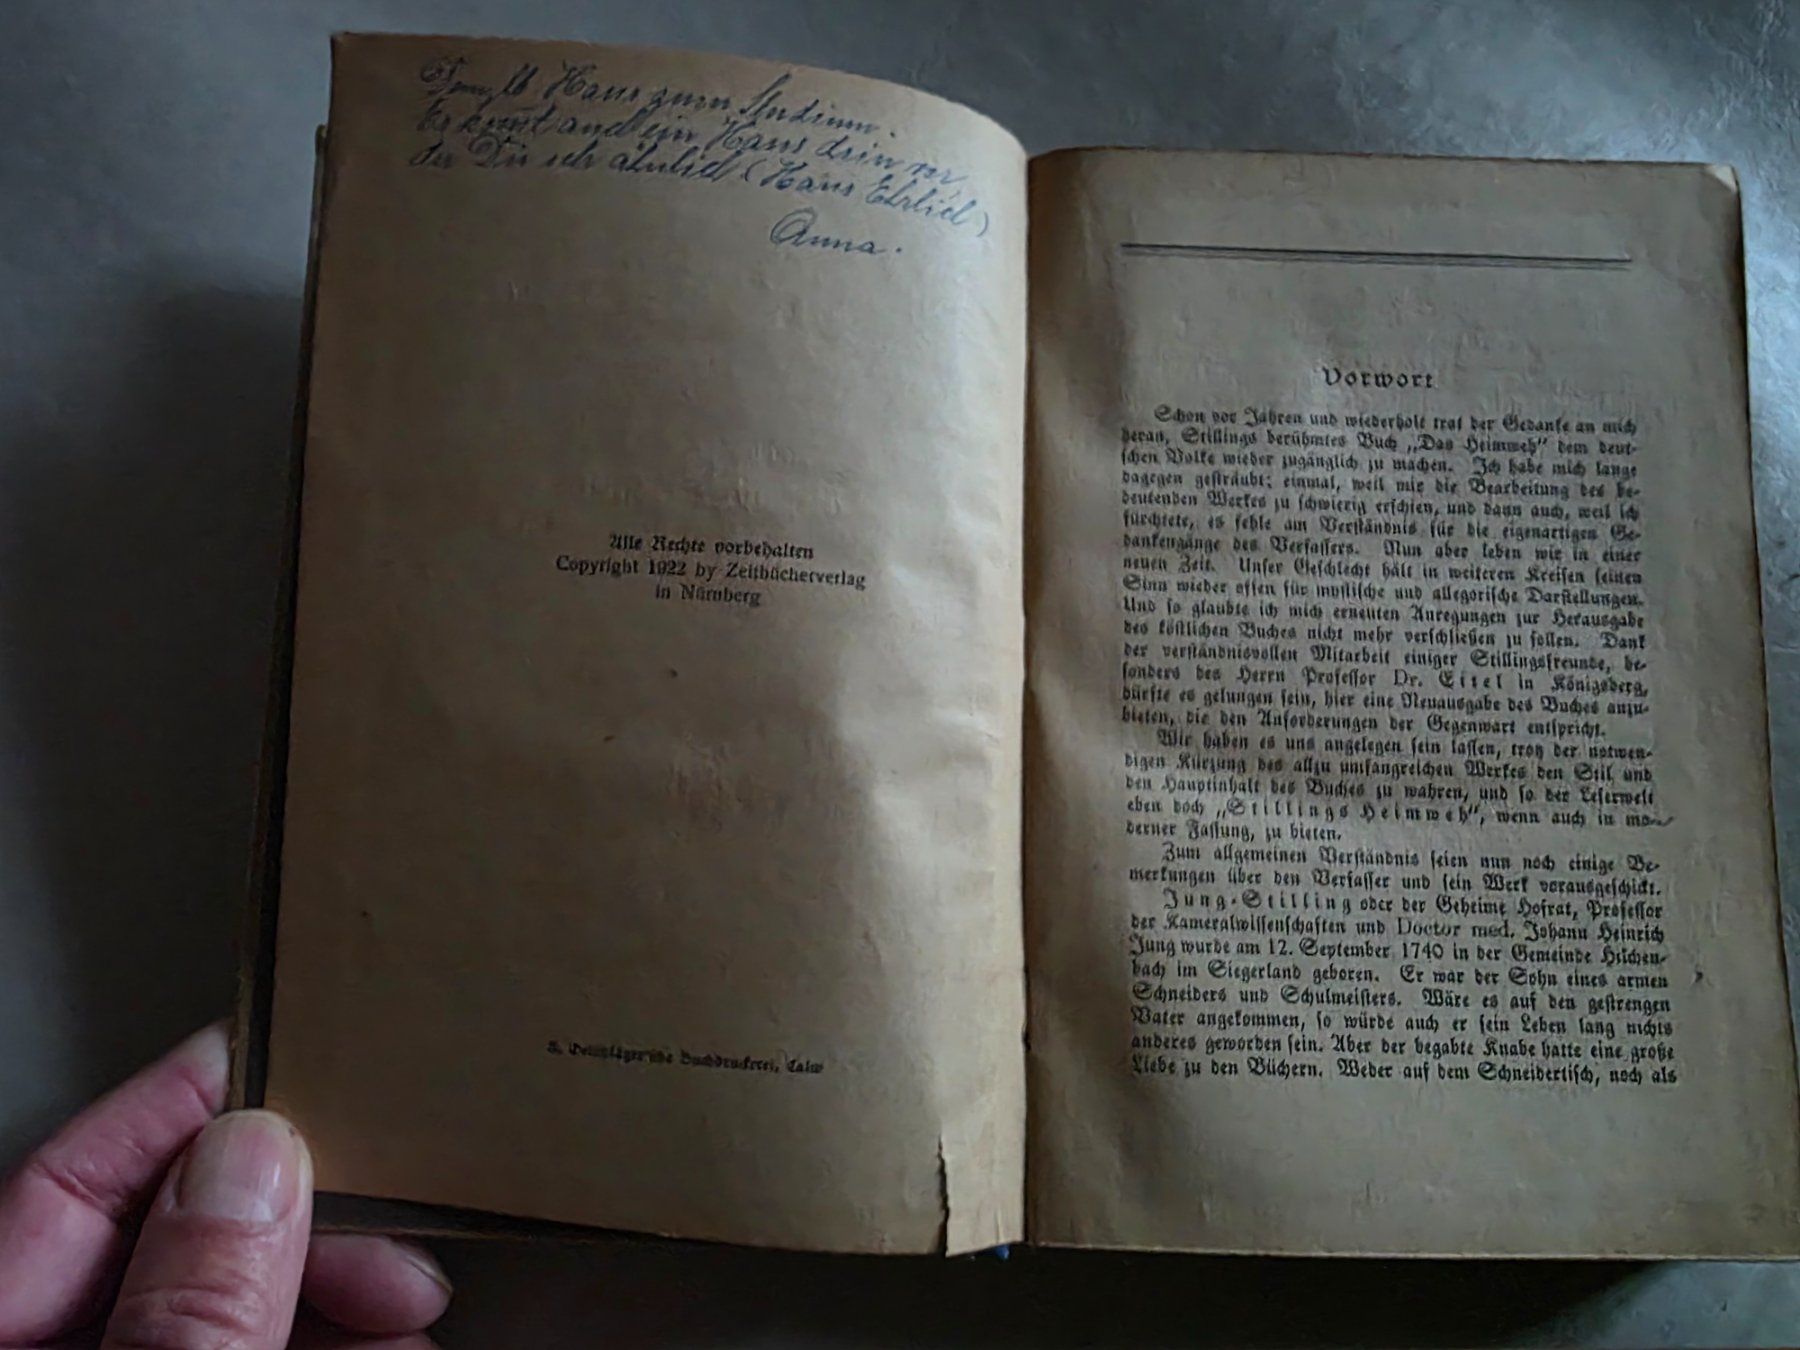 Dem lb Hans zum Studium.
Es kommt auch ein Hans drin vor,
der Dir sehr ähnlich (Hans Ehrlich)
Anna.
Alle Rechte vorbehalten
Copyright 1922 by Zeitbücherverlag
in Nürnberg
Buchdruckerei, Calw
Vorwort
Schon vor Jahren und wiederholt trat der Gedanke an mich
heran, Stillings berühmtes Buch „Das Heimweh“ dem deut-
schen Volke wieder zugänglich zu machen. Ich habe mich lange
dagegen gesträubt; einmal, weil mir die Bearbeitung des be-
deutenden Werkes zu schwierig erschien, und dann auch, weil ich
fürchtete, es fehle am Verständnis für die eigenartigen Ge-
dankengänge des Verfassers. Nun aber leben wir in einer
neuen Zeit. Unser Geschlecht hält in weiteren Kreisen seinen
Sinn wieder offen für mystische und allegorische Darstellungen.
Und so glaubte ich mich erneuten Anregungen zur Herausgabe
des köstlichen Buches nicht mehr verschließen zu sollen. Dank
der verständnisvollen Mitarbeit einiger Stillingsfreunde, be-
sonders des Herrn Professor Dr. Eitel in Königsberg,
dürfte es gelungen sein, hier eine Neuausgabe des Buches anzu-
bieten, die den Anforderungen der Gegenwart entspricht.
Wir haben es uns angelegen sein lassen, trotz der notwen-
digen Kürzung des allzu umfangreichen Werkes den Stil und
den Hauptinhalt des Buches zu wahren, und so der Leserwelt
eben doch „Stillings Heimweh“, wenn auch in mo-
derner Fassung, zu bieten.
Zum allgemeinen Verständnis seien nun noch einige Be-
merkungen über den Verfasser und sein Werk vorausgeschickt.
Jung-Stilling oder der Geheime Hofrat, Professor
der Kameralwissenschaften und Doctor med. Johann Heinrich
Jung wurde am 12. September 1740 in der Gemeinde Hilchen-
bach im Siegerland geboren. Er war der Sohn eines armen
Schneiders und Schulmeisters. Wäre es auf den gestrengen
Vater angekommen, so würde auch er sein Leben lang nichts
anderes geworden sein. Aber der begabte Knabe hatte eine große
Liebe zu den Büchern. Weder auf dem Schneidertisch, noch als